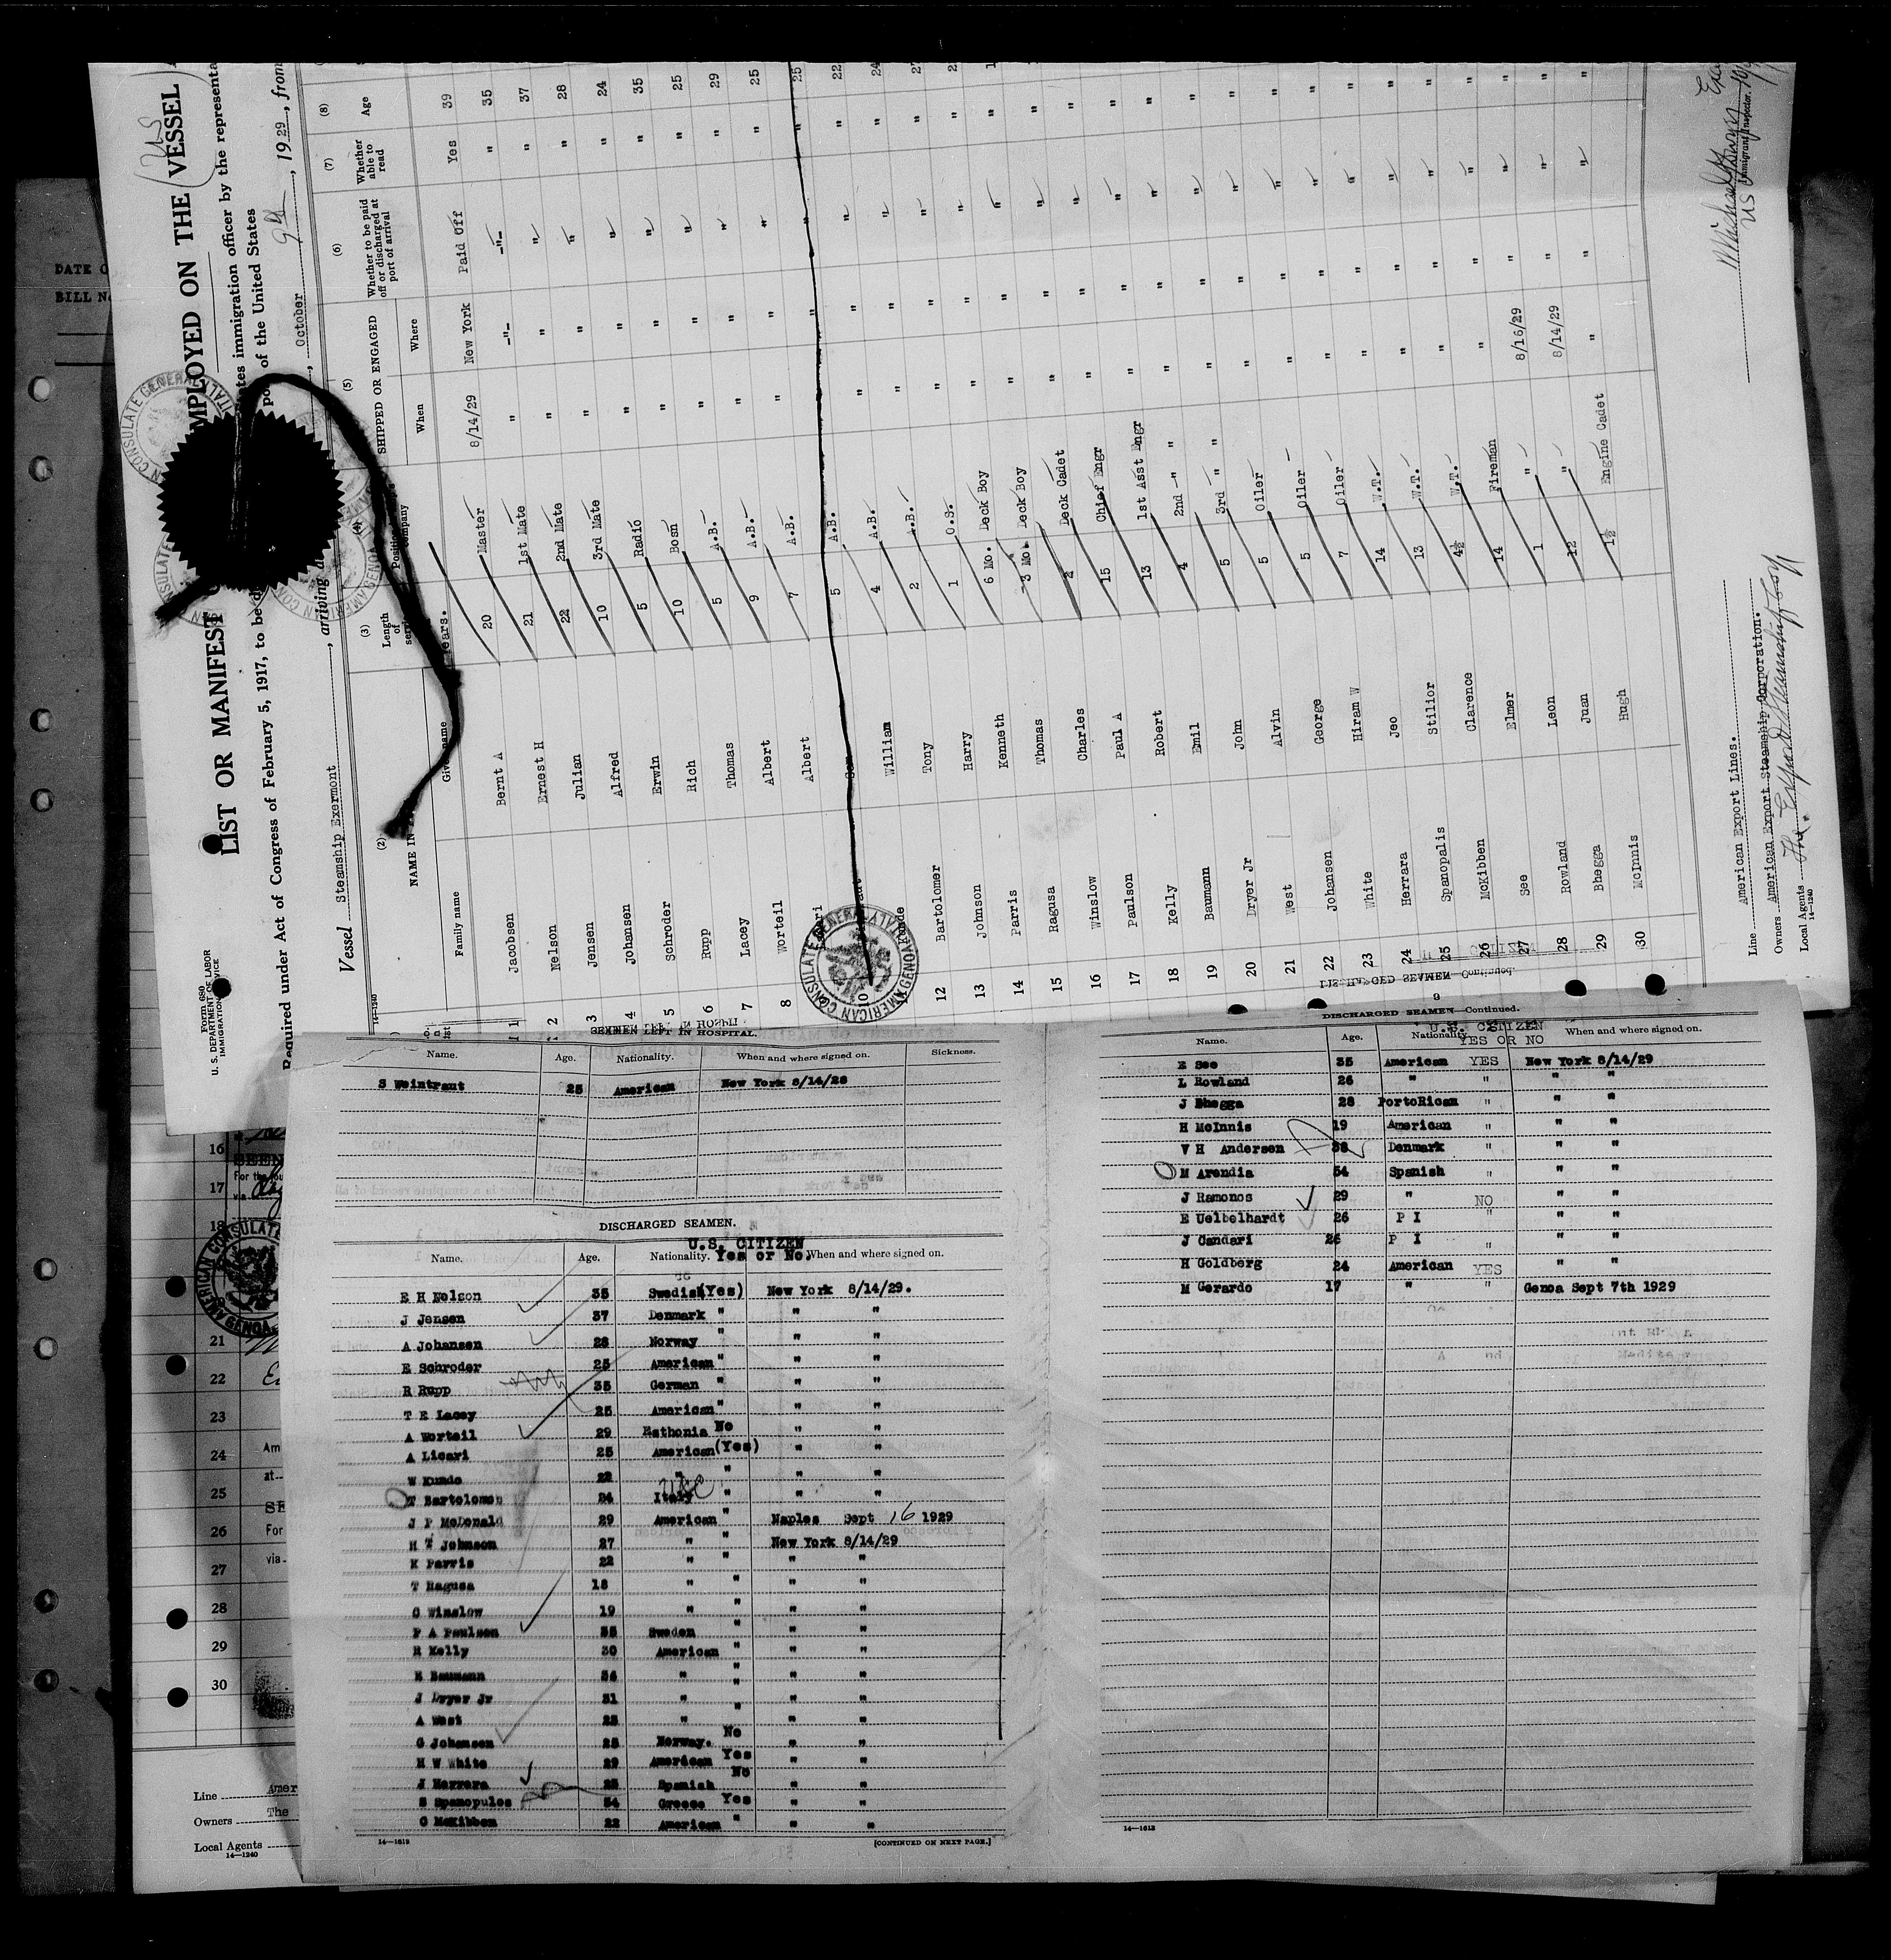 Form 680
U. S. DEPARTMENT OF LABOR
IMMIGRATION SERVICE
14-1240
LIST OR MANIFEST
EMPLOYED ON THE VESSEL
US
Required under Act of Congress of February 5, 1917, to be
immigration officer by the representa
of the United States
Vessel Steamship Exermont, arriving
October 9th, 1929, from
(2) (3) (4) (5) (6) (7) (8)
NAME IN
Family name
Length of
Position
company
SHIPPED OR ENGAGED
When
Where
Whether to be paid off or discharged at port of arrival
Whether able to read
Age
1 Jacobsen Bernt A 20 Master 8/14/29 New York Paid Off Yes 39
2 Nelson Ernest H 21 1st Mate " -"- -"- " 35
3 Jensen Julian 22 2nd Mate " " " " 37
4 Johansen Alfred 10 3rd Mate " " " " 28
5 Schroder Erwin 5 Radio " " " " 24
6 Rupp Rich 10 Bosn " " " " 35
7 Lacey Thomas 5 A.B. " " " " 25
8 Worteil Albert 9 A.B. " " " " 29
Albert 7 A.B. " " " " 25
10 Sam 5 A.B. 25
William 4 A.B. " " " " 22
12 Bartolomer Tony 2 A.B. " " " " 24
13 Johnson Harry 1 O.S. " " " "
14 Parris Kenneth 6 Mo. Deck Boy " " " "
15 Ragusa Thomas 3 Mo Deck Boy " " " "
16 Winslow Charles 2 Deck Cadet " " " "
17 Paulson Paul A 15 Chief Engr " " " "
18 Kelly Robert 13 1st Asst Engr " " " "
19 Baumann Emil 4 2nd -"- " " " " "
20 Dryer Jr John 5 3rd " " " " " "
21 West Alvin 5 Oiler " " " "
22 Johansen George 5 Oiler " " " "
23 White Hiram W 7 Oiler " " " "
24 Herrara Jeo 14 W.T. " " " "
25 Spanopalis Stilior 13 W.T. " " " "
26 McKibben Clarence 4½ W.T. " " " "
27 See Elmer 14 Fireman " " " "
28 Rowland Leon 1 -"- 8/16/29 " " "
29 Bhegga Juan 12 " 8/14/29 " " "
30 McInnis Hugh 1½ Engine Cadet " " " "
Line American Export Lines.
Owners American Export Steamship Corporation.
Local Agents The Export Steamship Corp
14-1240
Immigrant Inspector.
AMERICAN CONSULATE GENERAL
GENOA ITALY
DATE O
BILL No
SEAMEN LEFT IN HOSPITAL.
Name. Age. Nationality. When and where signed on. Sickness.
S Weintraut 25 American New York 8/14/28
DISCHARGED SEAMEN.
U.S. CITIZEN
Name. Age. Nationality. Yes or No. When and where signed on.
E H Nelson 35 Swedish (Yes) New York 8/14/29.
J Jensen 37 Denmark " " "
A Johansen 28 Norway " " "
E Schroder 25 American " " "
R Rupp 35 German " " "
T E Lacey 25 American " " "
A Worteil 29 Esthonia No " "
A Licari 25 American (Yes) " "
W Kunde 22 " " " "
T Bartolomeu 24 Italy " " "
J P McDonald 29 American " Naples Sept 16 1929
H T Johnson 27 " " New York 8/14/29
K Parris 22 " " " "
T Ragusa 18 " " " "
C Winslow 19 " " " "
P A Paulsen 35 Sweden " " "
R Kelly 30 American " " "
E Baumann 34 " " " "
J Dryer Jr 31 " " " "
A West 25 " " " "
G Johansen 25 Norway. No " "
H W White 29 American Yes " "
J Herrera 25 Spanish No " "
S Spanopulos 34 Greece Yes " "
C McKibben 22 American " " "
14-1612
[CONTINUED ON NEXT PAGE.]
DISCHARGED SEAMEN—Continued.
U.S. CITIZEN
Name. Age. Nationality YES OR NO When and where signed on.
E See 35 American YES New York 8/14/29
L Rowland 26 " " " "
J Bhegga 28 PortoRican " " "
H McInnis 19 American " " "
V H Andersen 38 Denmark " " "
M Arendia 54 Spanish " " "
J Ramonos 29 " NO " "
E Uelbelhardt 26 P I " " "
J Candari 26 P I " " "
H Goldberg 24 American YES " "
M Gerardo 17 " " Genoa Sept 7th 1929
14-1612
16
SEEN
For the
via
17
18
21
22
23
24
Am
at
25
SE
26
For
27
via
28
29
30
Line Amer
Owners The
Local Agents
14-1240